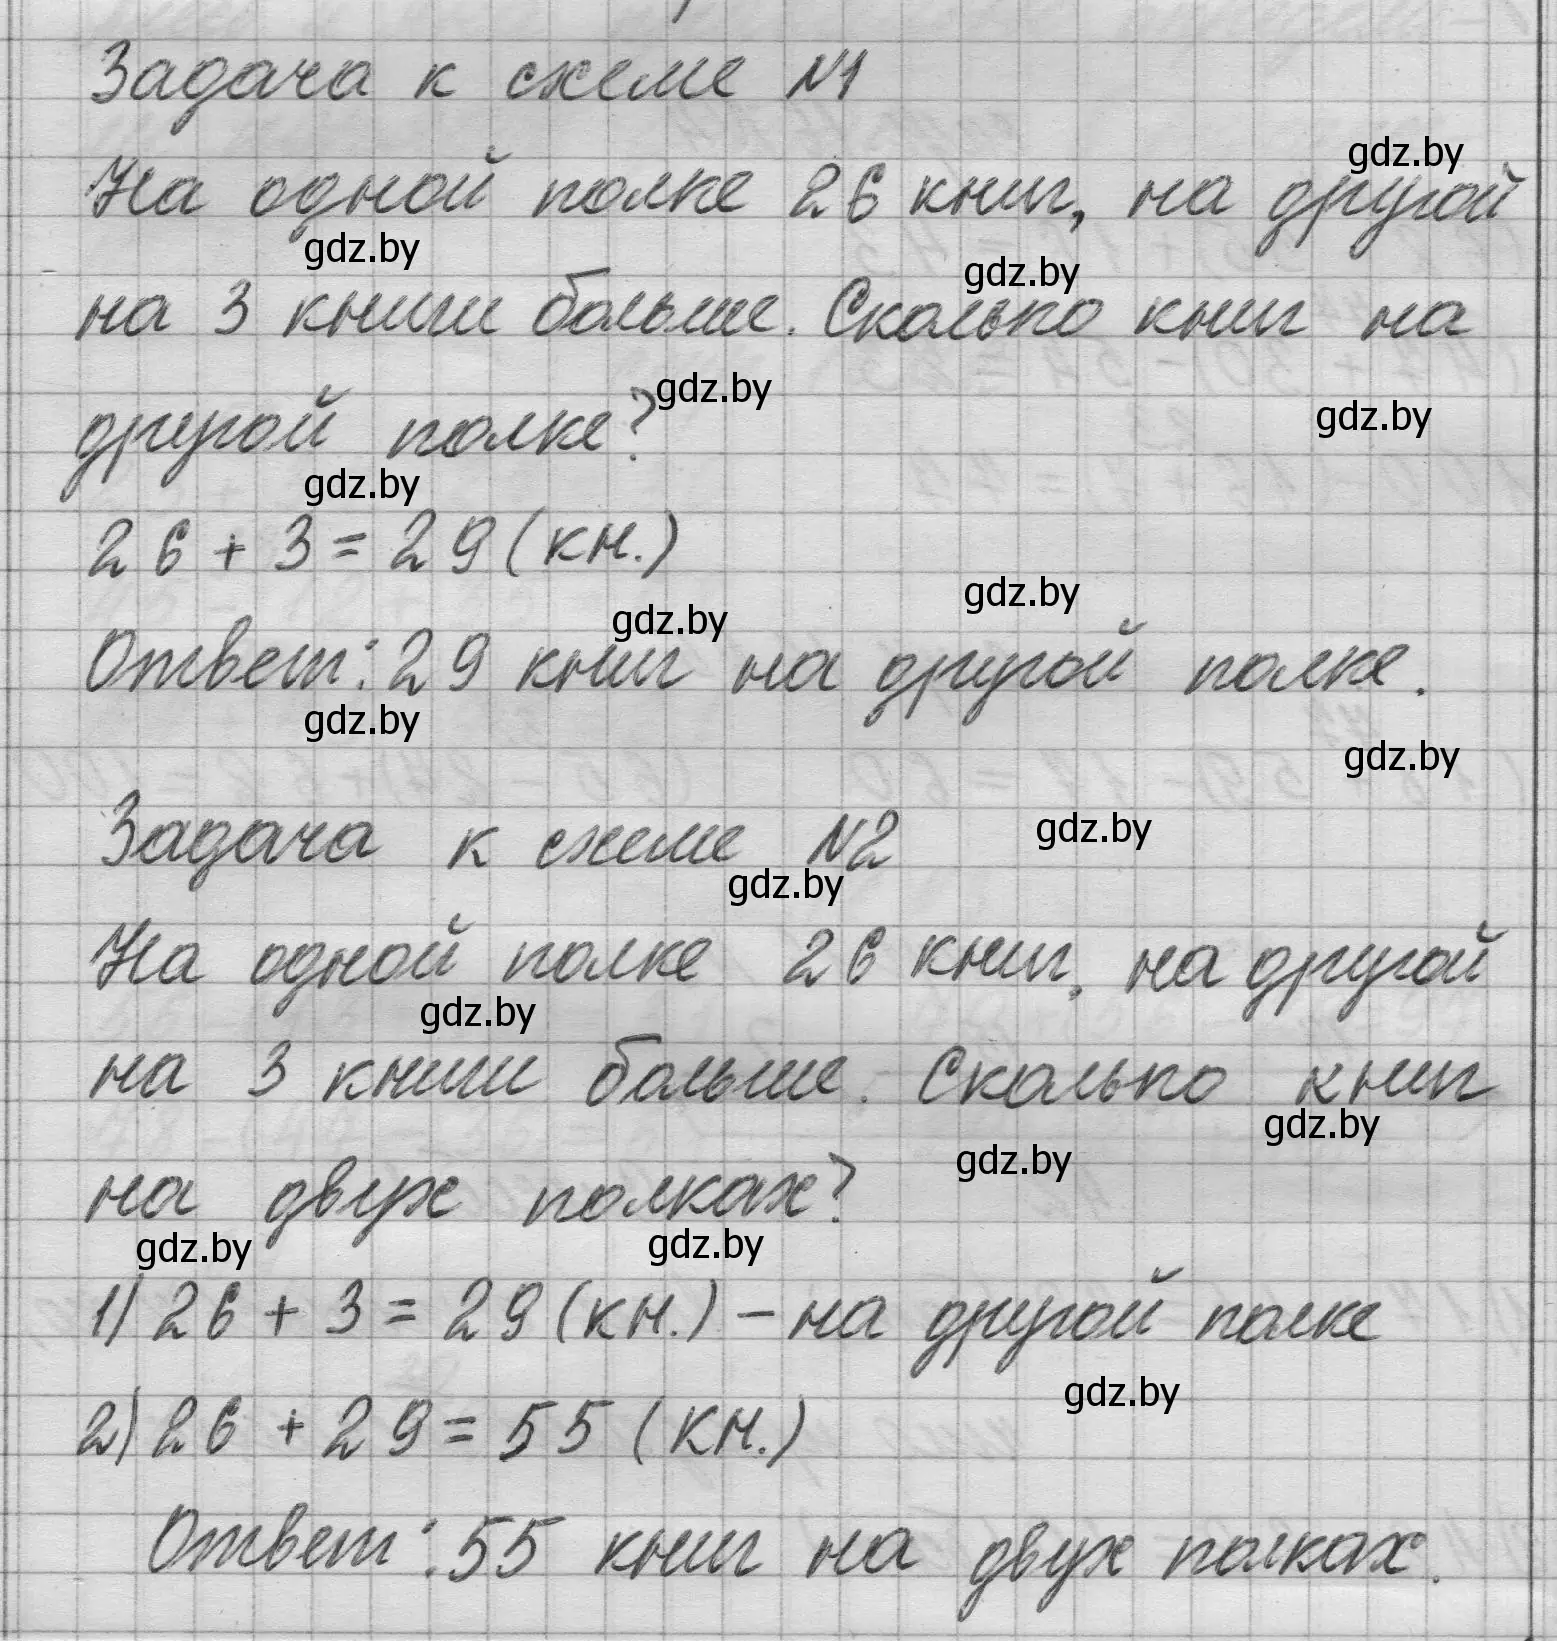 Задача к схеме №1
gdz.by
На одной полке 26 книг, на другой
gdz.by
gdz.by
на 3 книги больше. Сколько книг на
gdz.by
gdz.by
другой полке?
gdz.by
26 + 3 = 29 (кн.)
gdz.by
gdz.by
Ответ: 29 книг на другой полке.
gdz.by
gdz.by
Задача к схеме №2
gdz.by
gdz.by
На одной полке 26 книг, на другой
gdz.by
на 3 книги больше. Сколько книг
gdz.by
gdz.by
на двух полках?
gdz.by
gdz.by
1) 26 + 3 = 29 (кн.) – на другой полке
gdz.by
2) 26 + 29 = 55 (кн.)
Ответ: 55 книг на двух полках.